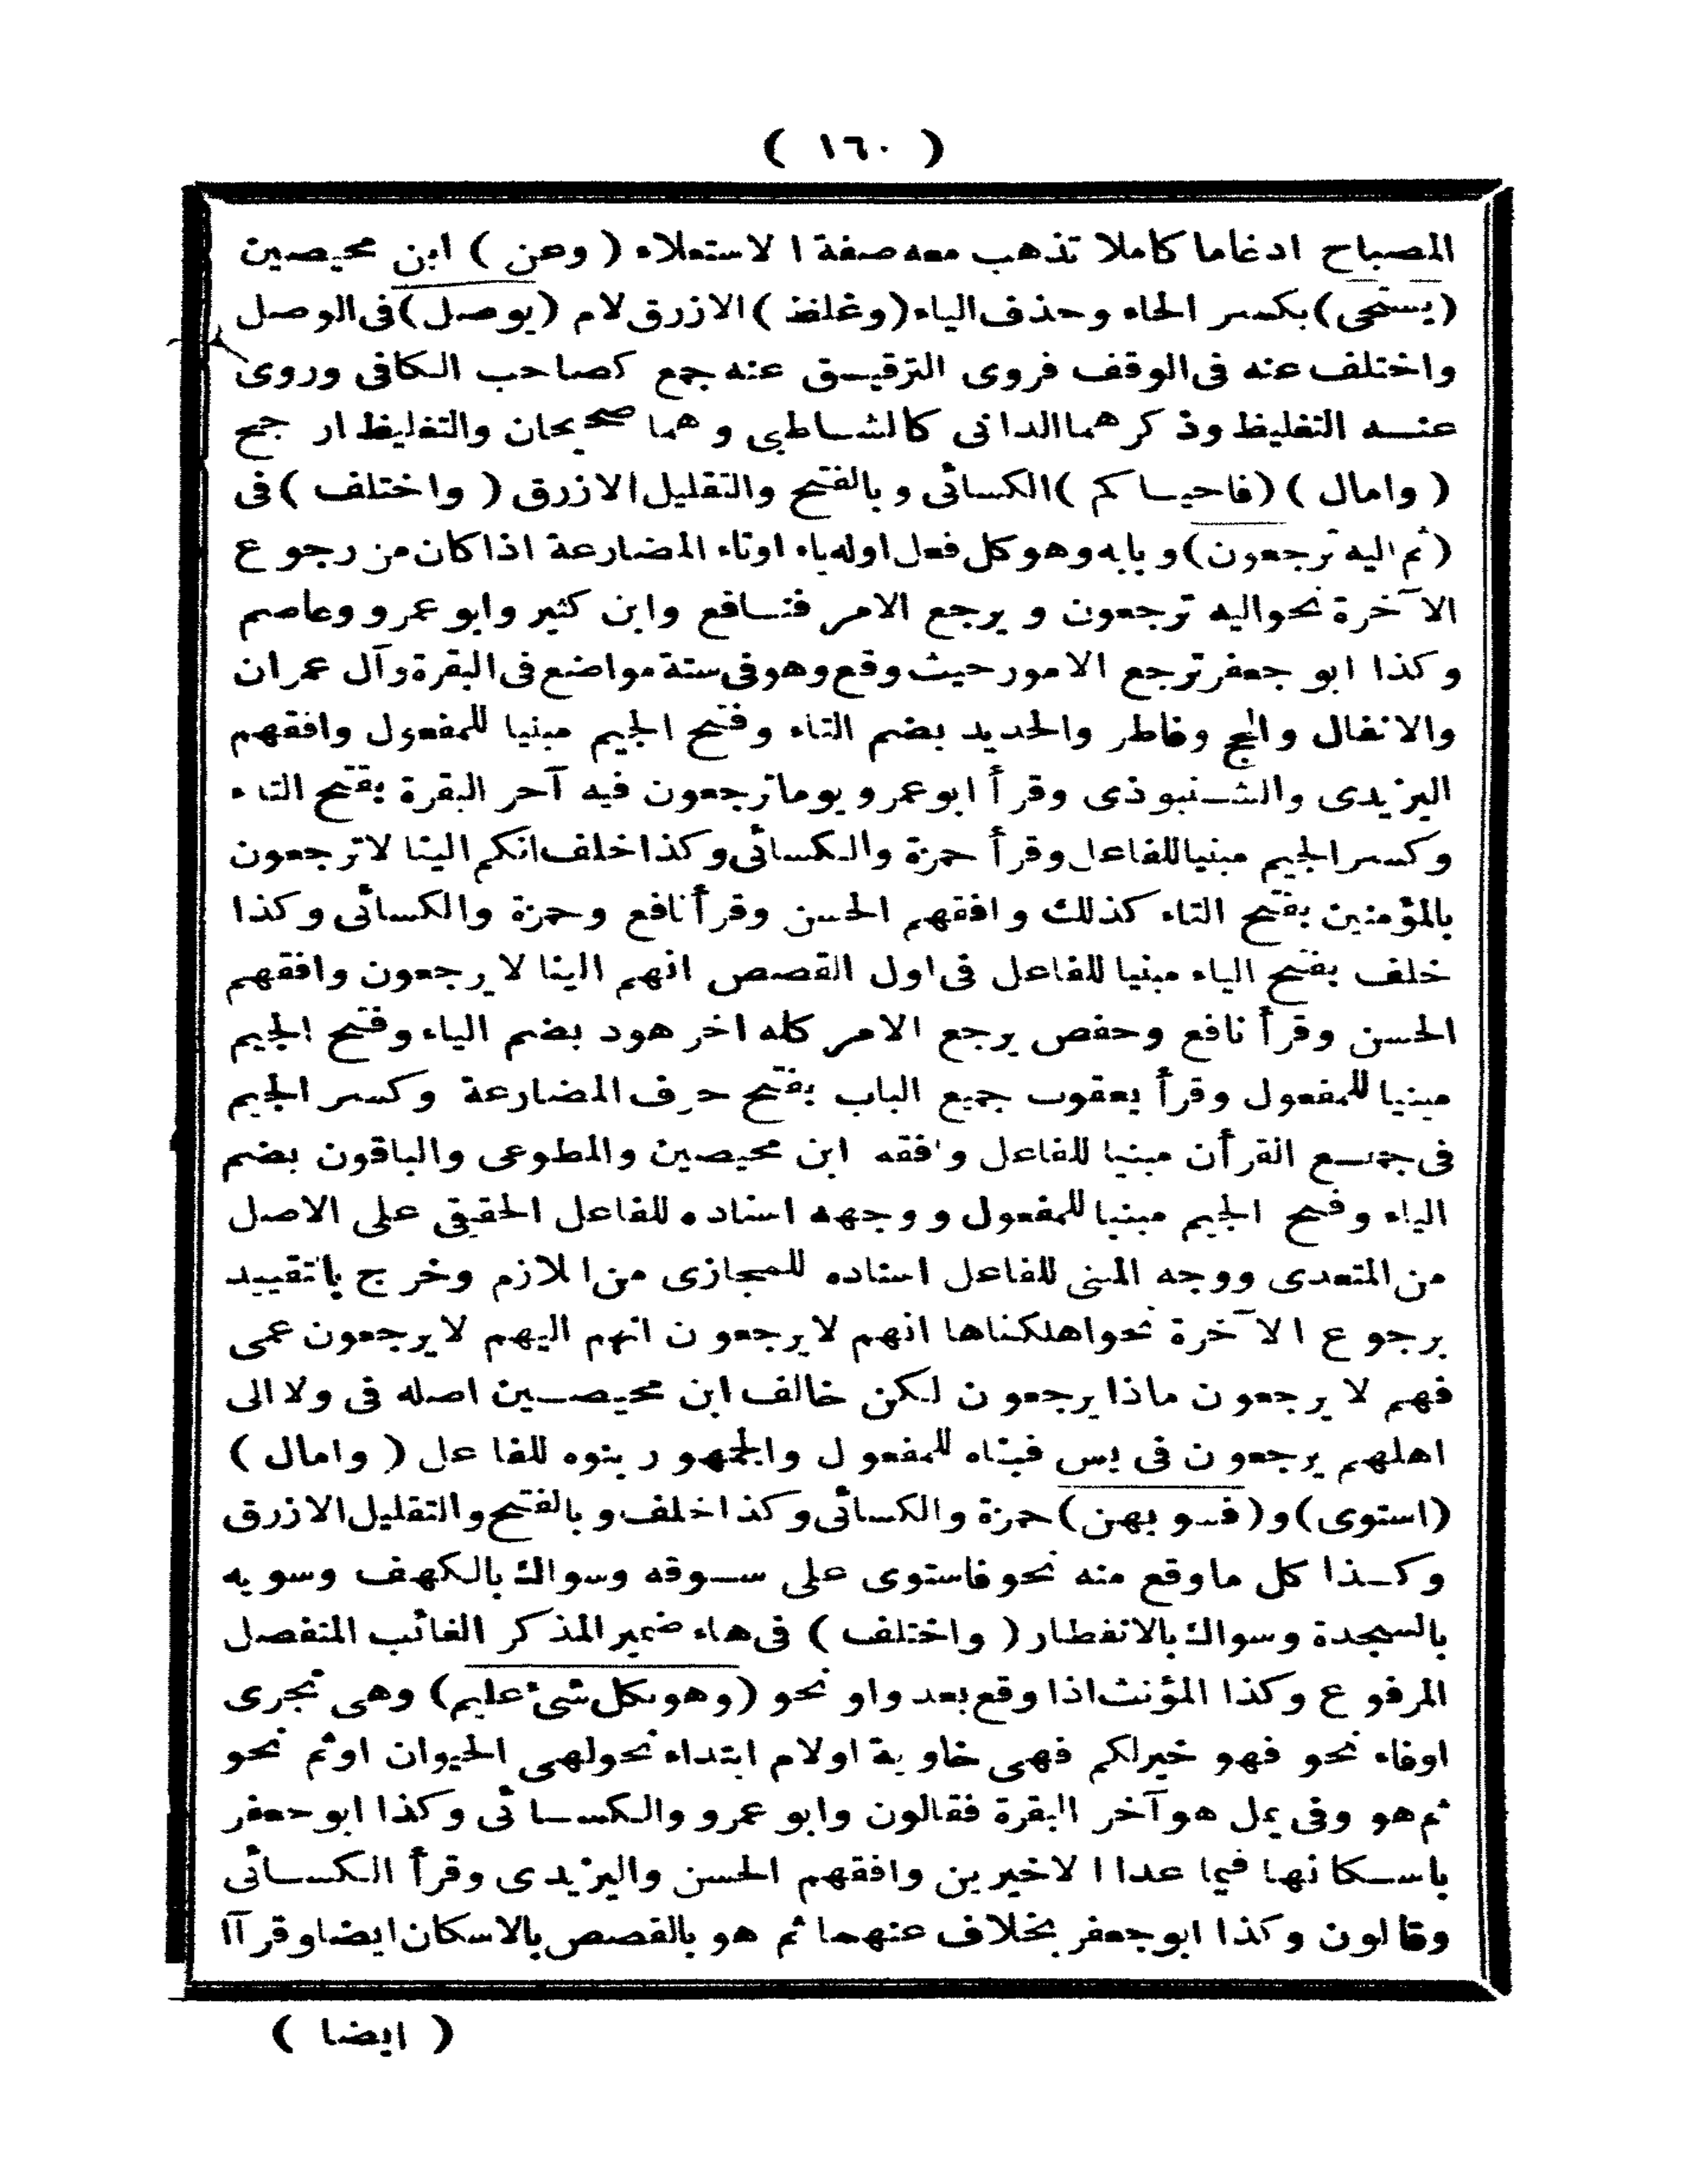 ( ١٦٠ )
المصباح ادغاما كاملا تذهب معه صفة الاستعلاء ( وعن ) ابن محيصين
(يستحى) بكسر الحاء وحذف الياء (وغلظ) الازرق لام (يوصل) فى الوصل
واختلف عنه فى الوقف فروى الترقيق عنه جمع كصاحب الكافى وروى
عنه التغليظ وذكرهما الدانى كالشاطبى وهما صحيحان والتغليظ ارجح
( وامال ) (فاحياكم) الكسائى وبالفتح والتقليل الازرق ( واختلف ) فى
(ثم اليه ترجعون) وبابه وهو كل فعل اوله ياء اوتاء المضارعة اذا كان من رجوع
الآخرة نحو اليه ترجعون ويرجع الامر فنافع وابن كثير وابو عمرو وعاصم
وكذا ابو جعفر ترجع الامور حيث وقع وهو فى ستة مواضع فى البقرة وآل عمران
والانفال والحج وفاطر والحديد بضم التاء وفتح الجيم مبنيا للمفعول وافقهم
اليزيدى والشنبوذى وقرأ ابو عمرو يوما ترجعون فيه آخر البقرة بفتح التاء
وكسر الجيم مبنيا للفاعل وقرأ حمزة والكسائى وكذا خلف انكم الينا لا ترجعون
بالمؤمنين بفتح التاء كذلك وافقهم الحسن وقرأ نافع وحمزة والكسائى وكذا
خلف بفتح الياء مبنيا للفاعل فى اول القصص انهم الينا لا يرجعون وافقهم
الحسن وقرأ نافع وحفص يرجع الامر كله اخر هود بضم الياء وفتح الجيم
مبنيا للمفعول وقرأ يعقوب جميع الباب بفتح حرف المضارعة وكسر الجيم
فى جميع القرأن مبنيا للفاعل وافقه ابن محيصين والمطوعى والباقون بضم
الياء وفتح الجيم مبنيا للمفعول ووجهه اسناده للفاعل الحقيقى على الاصل
من المتعدى ووجه المبنى للفاعل اسناده للمجازى من اللازم وخرج بالتقييد
برجوع الآخرة نحو اهلكناها انهم لا يرجعون انهم اليهم لا يرجعون عمى
فهم لا يرجعون ماذا يرجعون لكن خالف ابن محيصين اصله فى ولا الى
اهلهم يرجعون فى يس فبناه للمفعول والجمهور بنوه للفاعل ( وامال )
(استوى) و (فسويهن) حمزة والكسائى وكذا خلف وبالفتح والتقليل الازرق
وكذا كل ما وقع منه نحو فاستوى على سوقه وسواك بالكهف وسويه
بالسجدة وسواك بالانفطار ( واختلف ) فى هاء ضمير المذكر الغائب المنفصل
المرفوع وكذا المؤنث اذا وقع بعد واو نحو (وهو بكل شىء عليم) وهى تجرى
اوفاء نحو فهو خير لكم فهى خاوية اولام ابتداء نحو لهى الحيوان اوثم نحو
ثم هو وفى يمل هو آخر البقرة فقالون وابو عمرو والكسائى وكذا ابو جعفر
باسكانها فيما عدا الاخيرين وافقهم الحسن واليزيدى وقرأ الكسائى
وقالون وكذا ابو جعفر بخلاف عنهما ثم هو بالقصص بالاسكان ايضا وقرآا
( ايضا )